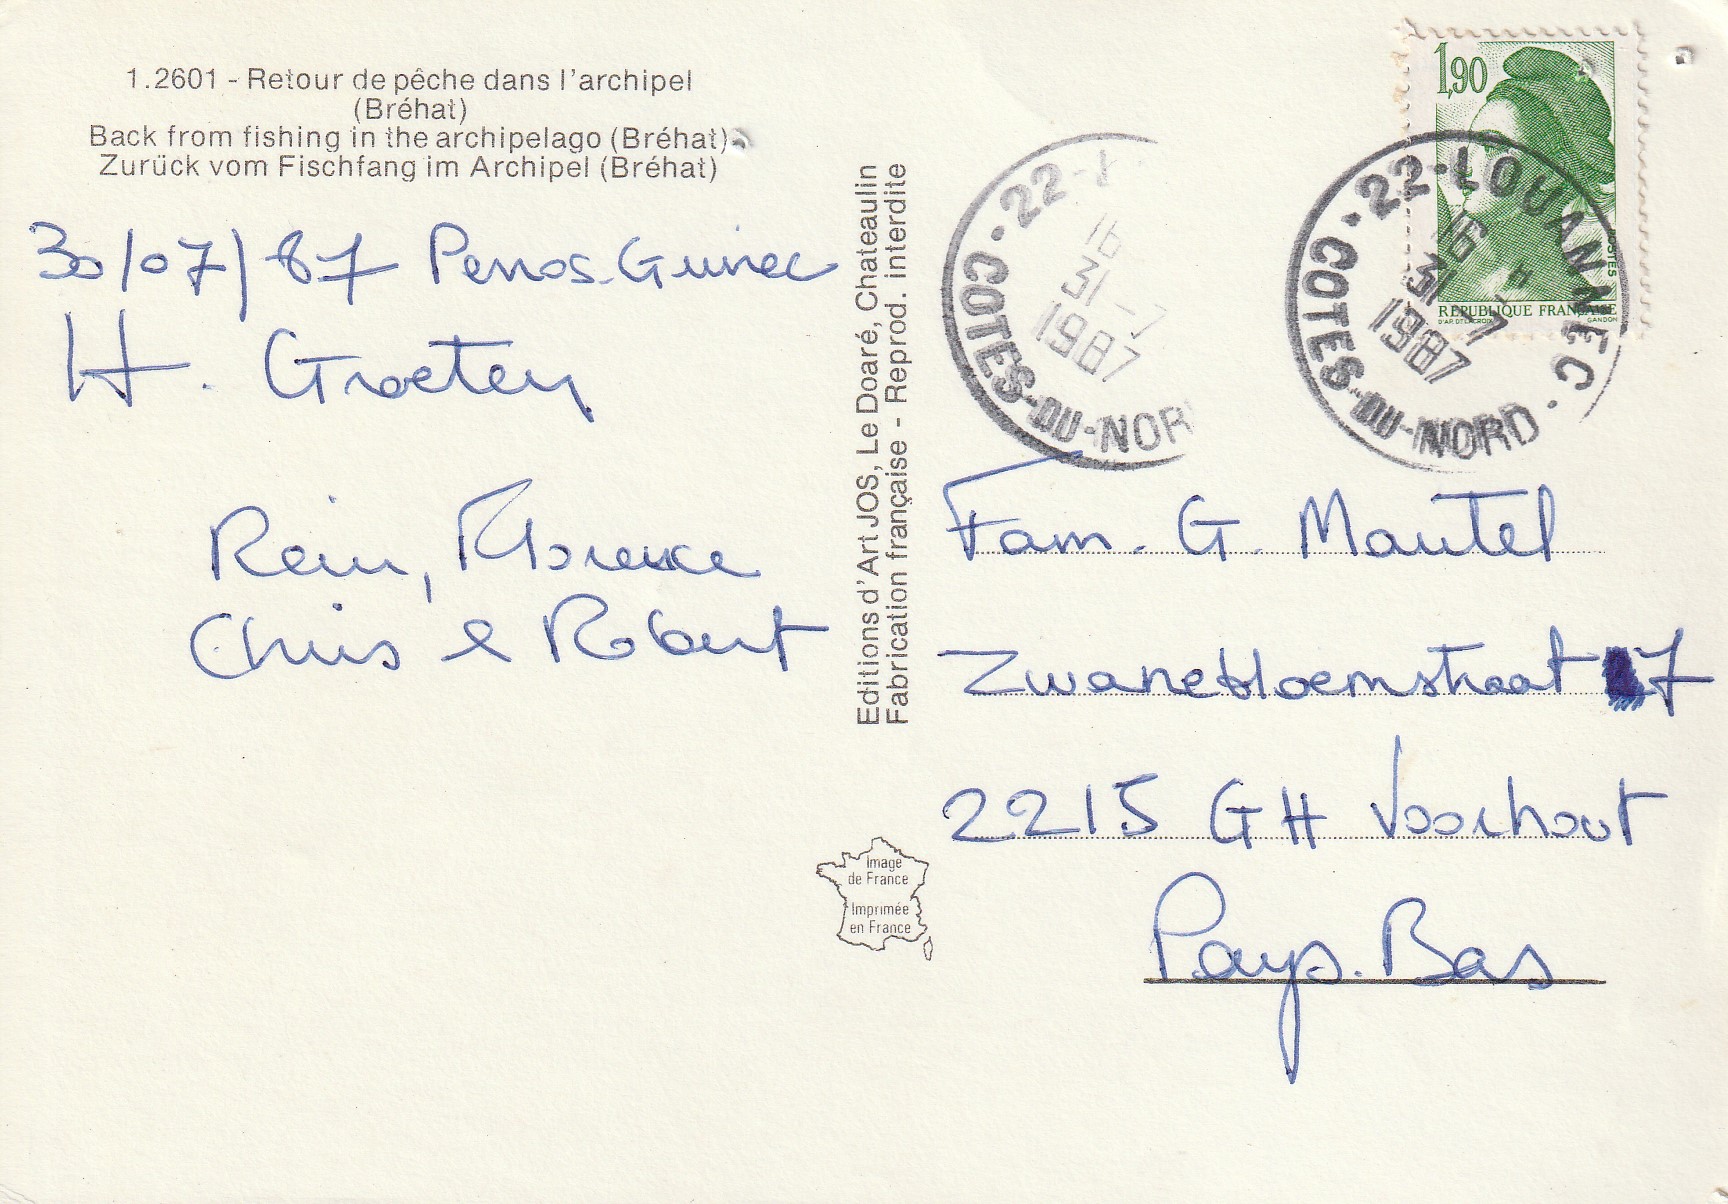 1.2601 - Retour de pêche dans l'archipel
(Bréhat)
Back from fishing in the archipelago (Bréhat)
Zurück vom Fischfang im Archipel (Bréhat)
30/07/87 Perros-Guirec
H. Groeten
Rein, Florence
Chris & Robert
Editions d'Art JOS, Le Doaré, Chateaulin
Fabrication française - Reprod. interdite
Image
de France
Imprimée
en France
1,90
POSTES
REPUBLIQUE FRANÇAISE
D'AP. DELACROIX GANDON
22 -
16
31 - 7
1987
COTES-DU-NOR
22-LOUANNEC
16 H
31 - 7
1987
COTES-DU-NORD
Fam. G. Mantel
Zwanebloemstraat 7
2215 GH Voorhout
Pays-Bas